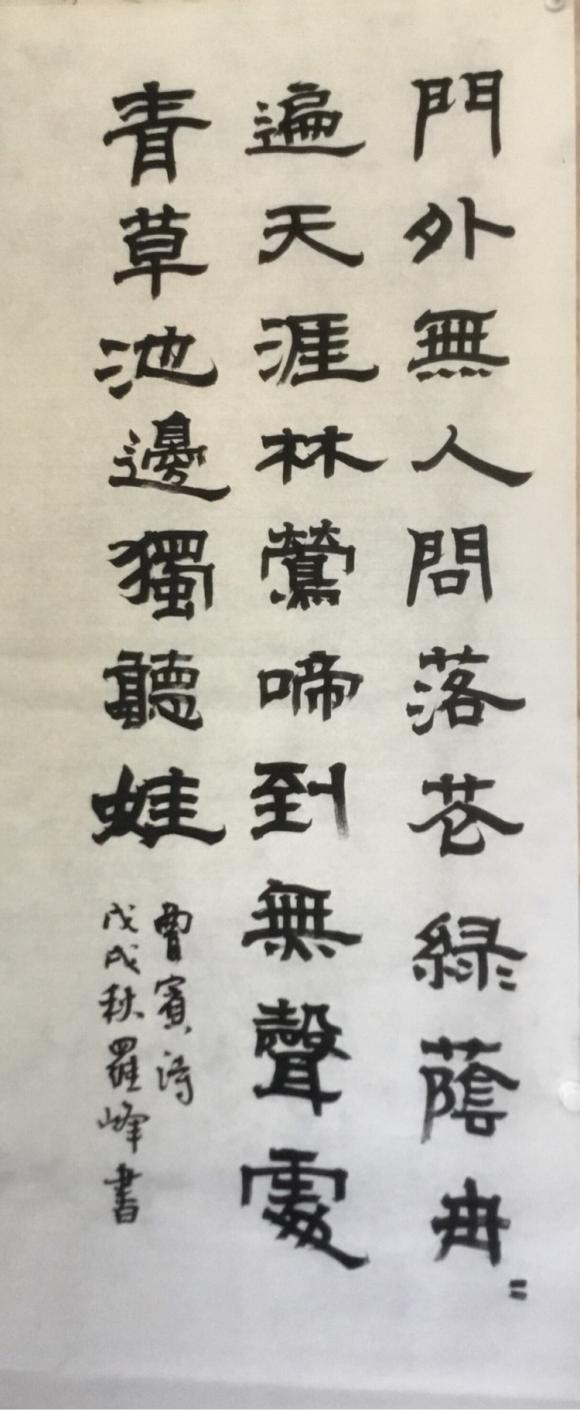 門外無人問落花綠蔭冉〻
遍天涯林鶯啼到無聲處
青草池邊獨聽蛙
曹豳詩
戊戌秋羅峰書